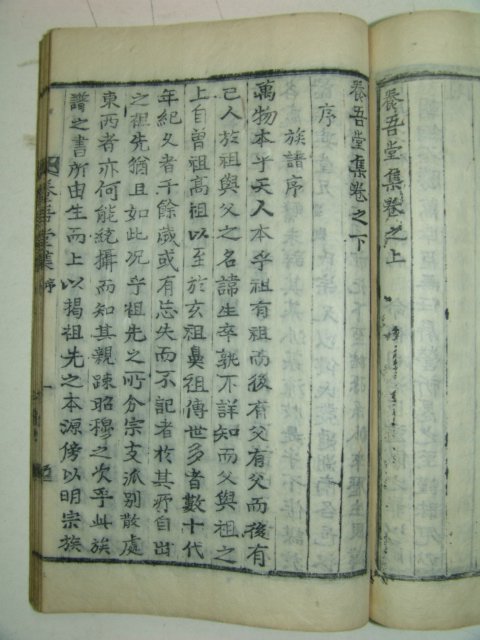 養吾堂集卷之上
養吾堂集卷之下
序
族譜序
萬物本乎天人本乎祖有祖而後有父有父而後有
已人於祖與父之名諱生卒孰不詳知而父與祖之
上自曾祖高祖以至於玄祖鼻祖傳世多者數十代
年紀久者千餘歲或有忘失而不記者於其所自出
之祖先猶且如此况乎祖先之所分宗支派別散處
東西者亦何能統攝而知其親疎昭穆之次乎此族
譜之書所由生而上以揭祖先之本源傍以明宗族
養吾堂集 序 一